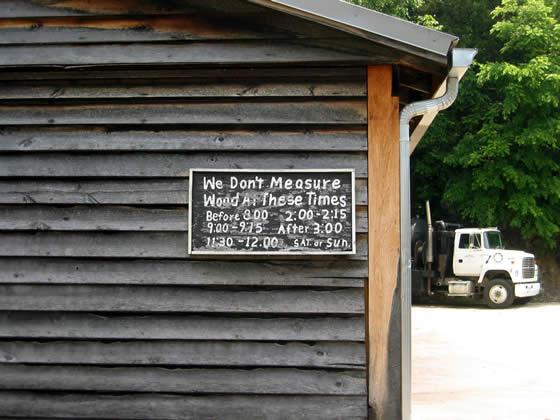 We Don't Measure
Wood At These Times
Before 8:00 2:00-2:15
9:00-9:15 After 3:00
11:30-12:00 SAT. or SUN.